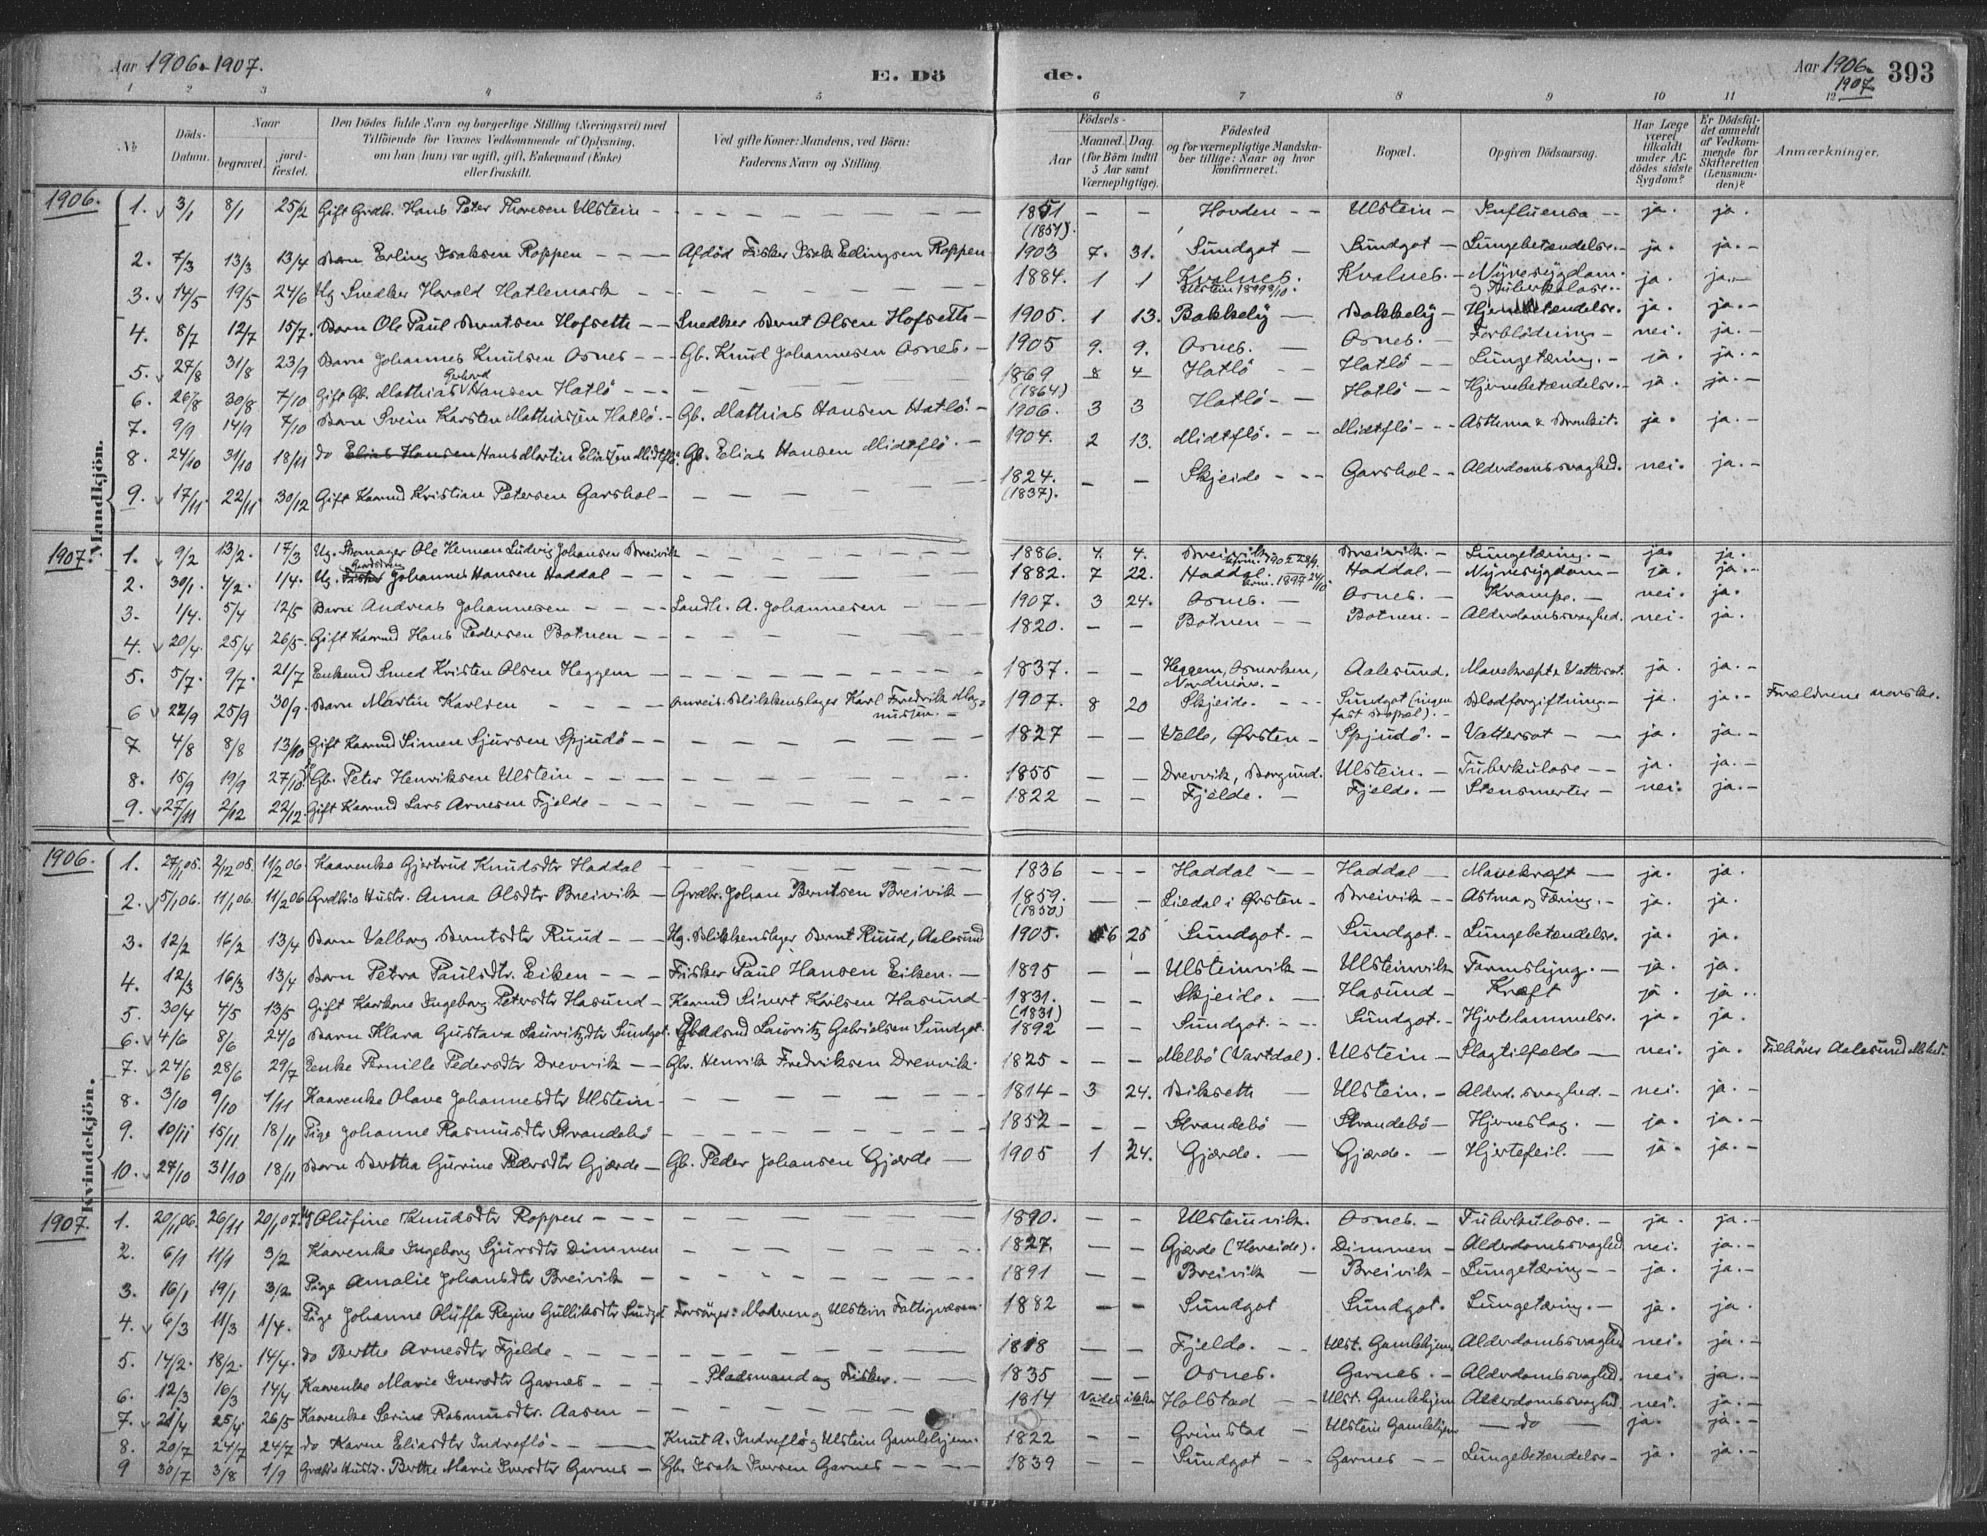 Aar 1906-1907.
E. Döde.
Aar 1906-1907. 393
1 2 3 4 5 6 7 8 9 10 11 12
No. Döds-Datum. Naar begravet. jordfæstet. Den Dödes fulde Navn og borgerlige Stilling (Næringsvei) med Tilföiende for Voxnes Vedkommende af Oplysning, om han (hun) var ugift, gift, Enkemand (Enke) eller fraskilt. Ved gifte Koner: Mandens, ved Börn: Faderens Navn og Stilling. Födsels- Aar Maaned. Dag. (for Börn indtil 5 Aar samt Værnepligtige). Födested og for værnepligtige Mandskaber tillige: Naar og hvor konfirmeret. Bopæl. Opgiven Dödsaarsag. Har Læge været tilkaldt under Afdödes sidste Sygdom? Er Dödsfaldet anmeldt af Vedkommende for Skifteretten (Lensmanden)? Anmærkninger.
Mandkjön.
1906.
1. 3/1 8/1 25/2 Gift Grdbr. Hans Peter Thoresen Ulstein – 1851 (1851). – – Hovden – Ulstein – Influensa – ja. ja.
2. 7/3 13/3 13/4 Barn Erling Isaksen Roppen – Afdöd Fisker Isak Edingsen Roppen 1903 7. 31. Sundgot – Sundgot – Lungebetændelse. – ja. ja. –
3. 14/5 19/5 24/6 Ug Snedker Harald Hatlemark – 1884. 1 1 Kvalnes. Ulstein 1899 8/10. Kvalnes. – Nyresygdom og Tuberkulose. ja. ja. –
4. 8/7 12/7 15/7. Barn Ole Paul Berntsen Hofseth – Snedker Bernt Olsen Hofseth – 1905. 1 13. Bakkelig – Bakkelig – Hjernebetændelse. ja. ja. –
5. 27/8 31/8 23/9 Barn Johannes Knudsen Osnes – Gb. Knud Johannesen Osnes. – 1905 9. 9. Osnes. – Osnes. – Forblödning – nei. ja. –
6. 26/8 30/8 7/10 Gift Gb. Mathias Gerhard Hansen Hatlö – 1869 (1864) 8 4 Hatlö – Hatlö – Lungetæring. – ja. ja. –
7. 9/9 14/9 7/10 Barn Svein Karsten Mathiassen Hatlö. – Gb. Mathias Hansen Hatlö. – 1906. 3 3 Hatlö – Hatlö – Hjernebetændelse. – ja. ja. –
8. 24/10 31/10 18/11 do Elias Hansen Hans Martin Eliassen Midtflö. Gb. Elias Hansen Midtflö. – 1904. 2 13. Midtflö. – Midtflö – Asthma & Bronkit. ja. ja. –
9. 17/11. 22/11 30/12 Gift Kaarmd Kristian Petersen Garshol – 1824. (1837). – – Skjeide – Garshol – Alderdomssvaghed. nei. ja. –
1907.
1. 9/2 13/2. 17/3 Ug. Skomager Ole Herman Ludvig Johansen Breivik – 1886. 4. 4. Breivik konf. 1902 28/9. Breivik. – Lungetæring. – ja. ja. –
2. 30/1. 4/2. 1/4. Ug. Fisker Johannes Hansen Haddal – 1882. 7 22. Haddal. konf. 1897 24/10. Haddal. – Nyresygdom – ja. ja. –
3. 1/4. 5/4 12/5 Barn Andreas Johannesen – Landh. A. Johannesen – 1907. 3 24. Osnes. – Osnes. – Krampe. – nei. ja.
4. 20/4. 25/4 26/5. Gift Kaarmd Hans Pedersen Botnen – 1820. – – Botnen – Botnen. – Alderdomssvaghed. nei. ja.
5. 5/7. 9/7. 21/7 Enkemd Smed Kristen Olsen Heggem – 1837. – – Heggem, Osmarken, Nordmöre. – Aalesund. Mavekræft & Vattersot. ja. ja. –
6 22/9 25/9 30/9. Barn Martin Karlsen – omreis. Blikkenslager Karl Fredrik Magnussen. – 1907. 8 20 Skjeide. – Sundgot (ingen fast Bopæl). – Blodforgiftning – ja. ja. – Forældrene norske.
7 4/8 8/8 13/10 Gift Kaarmd Simen Sjursen Spjudö – 1827 – – Velle, Örsten – Spjudö. – Vattersot – ja. ja. –
8. 15/9 19/9 27/10 Gb. Peter Henriksen Ulstein – 1855 – – Drevvik, Borgund. Ulstein. – Tuberkulose – ja. ja. –
9. 27/11 2/12 22/12. Gift Kaarmd Lars Arnesen Fjelde – 1822 – – Fjelde. – Fjelde. – Stensmerter – nei. ja. –
Kvindekjön.
1906.
1. 27/11 05. 2/12 05. 11/2 06. Kaarenke Gjertrud Knudsdtr Haddal – 1836 – – Haddal – Haddal – Mavekræft – ja. ja.
2. 5/1 06. 11/1 06. 11/2 06 Grdbrs Hustr. Anna Olsdtr Breivik – Grdbr. Johan Berntsen Breivik – 1859. (1850) – – Liedal i Örsten – Breivik – Astma og Tæring. – ja. ja.
3. 12/2 16/2 13/4 Barn Valborg Berntsdtr Ruud – Ug. Blikkenslager Bernt Ruud, Aalesund 1905. 6 25 Sundgot. – Sundgot. – Lungebetændelse. ja. ja.
4. 12/3 16/3 13/4 Barn Petra Paulsdtr. Eiken – Fisker Paul Hansen Eiken. – 1895 – – Ulsteinvik – Ulsteinvik Tarmslyng. – ja. ja.
5. 30/4 4/5 13/5 Gift Kaarkone Ingeborg Petersdtr Hasund – Kaarmd Sivert Karlsen Hasund – 1831. (1831) – – Skjeide. – Hasund – Kræft ja. ja.
6. 4/6 8/6 24/6 Barn Klara Gustava Lauritzdtr Sundgot. Pladsmd Lauritz Gabrielsen Sundgot. 1892 – – Sundgot. – Sundgot. – Hjertelammelse. ja. ja.
7. 24/6 28/6 29/7 Enke Pernille Pedersdtr Drevvik – Gbr. Henrik Fredriksen Drevvik. 1825 – – Melbö (Vartdal). Ulstein – Slagtilfælde – nei. ja. Tilhörer Aalesund
8. 3/10 9/10 1/11 Kaarenke Olave Johannesdtr Ulstein – 1814 – 3 24. Bikseth – Ulstein. – Alderd.svaghed. – nei. ja. –
9. 10/11 15/11 18/11 Pige Johanne Rasmusdtr Strandebö – 1852 – – Strandebö – Strandebö – Hjerneslag. – ja. ja. –
10. 27/10 31/10 18/11 Barn Bertha Gurine Pedersdtr Gjærde – Gb. Peder Johansen Gjærde – 1905 1 24. Gjærde. – Gjærde. – Hjertefeil. – ja. ja. –
1907.
1. 20/11 06. 26/11 20/1 07. Ug Olufine Knudsdtr Roppen – 1890. – – Ulsteinvik. Osnes. – Tuberkulose. – ja. ja. –
2. 6/1 11/1 3/2 Kaarenke Ingeborg Sjursdtr Dimmen – 1827. – – Gjærde (Hareide). Dimmen – Alderdomssvaghed nei. ja. –
3. 16/1 19/1 3/2 Pige Amalie Johansdtr Breivik – 1891 – – Breivik – Breivik – Lungetæring – ja. ja. –
4. 6/3 11/3 1/4. Pige Johanne Oluffa Regine Gulliksdtr Sundgot Forsörger: Moderen og Ulstein Fattigvæsen. 1882 – – Sundgot Sundgot. Lungetæring. – ja. ja.
5. 14/2. 18/2. 14/4. do Berthe Arnesdtr Fjelde – 1818 – – Fjelde. – Ulst. Gamlehjem Alderdomssvaghed nei. ja. –
6. 12/3 16/3 14/4 Kaarenke Marie Iversdtr Garnes – Pladsmand og Fisker. – 1835 – – Osnes. Garnes. – Alderdomssvaghed. nei. ja.
7. 21/4 25/4 26/5 Kaarenke Serine Rasmusdtr. Aasen – 1814 Vides ikke Holstad – Ulst. Gamlehjem Alderdomssvaghed. nei. ja. –
8. 20/7 24/7 24/7 do Karen Eliasdtr Indreflö – Knut A. Indreflö og Ulstein Gamlehjem. 1822 – – Grimstad – Ulstein Gamlehjem – do – ja. ja. –
9 30/7 3/8 1/9 Grdbrs Hustr. Berthe Marie Iversdtr Garnes – Gb. Isak Iversen Garnes – 1839 – – Sundgot – Garnes – Lungebetændelse – ja ja. –